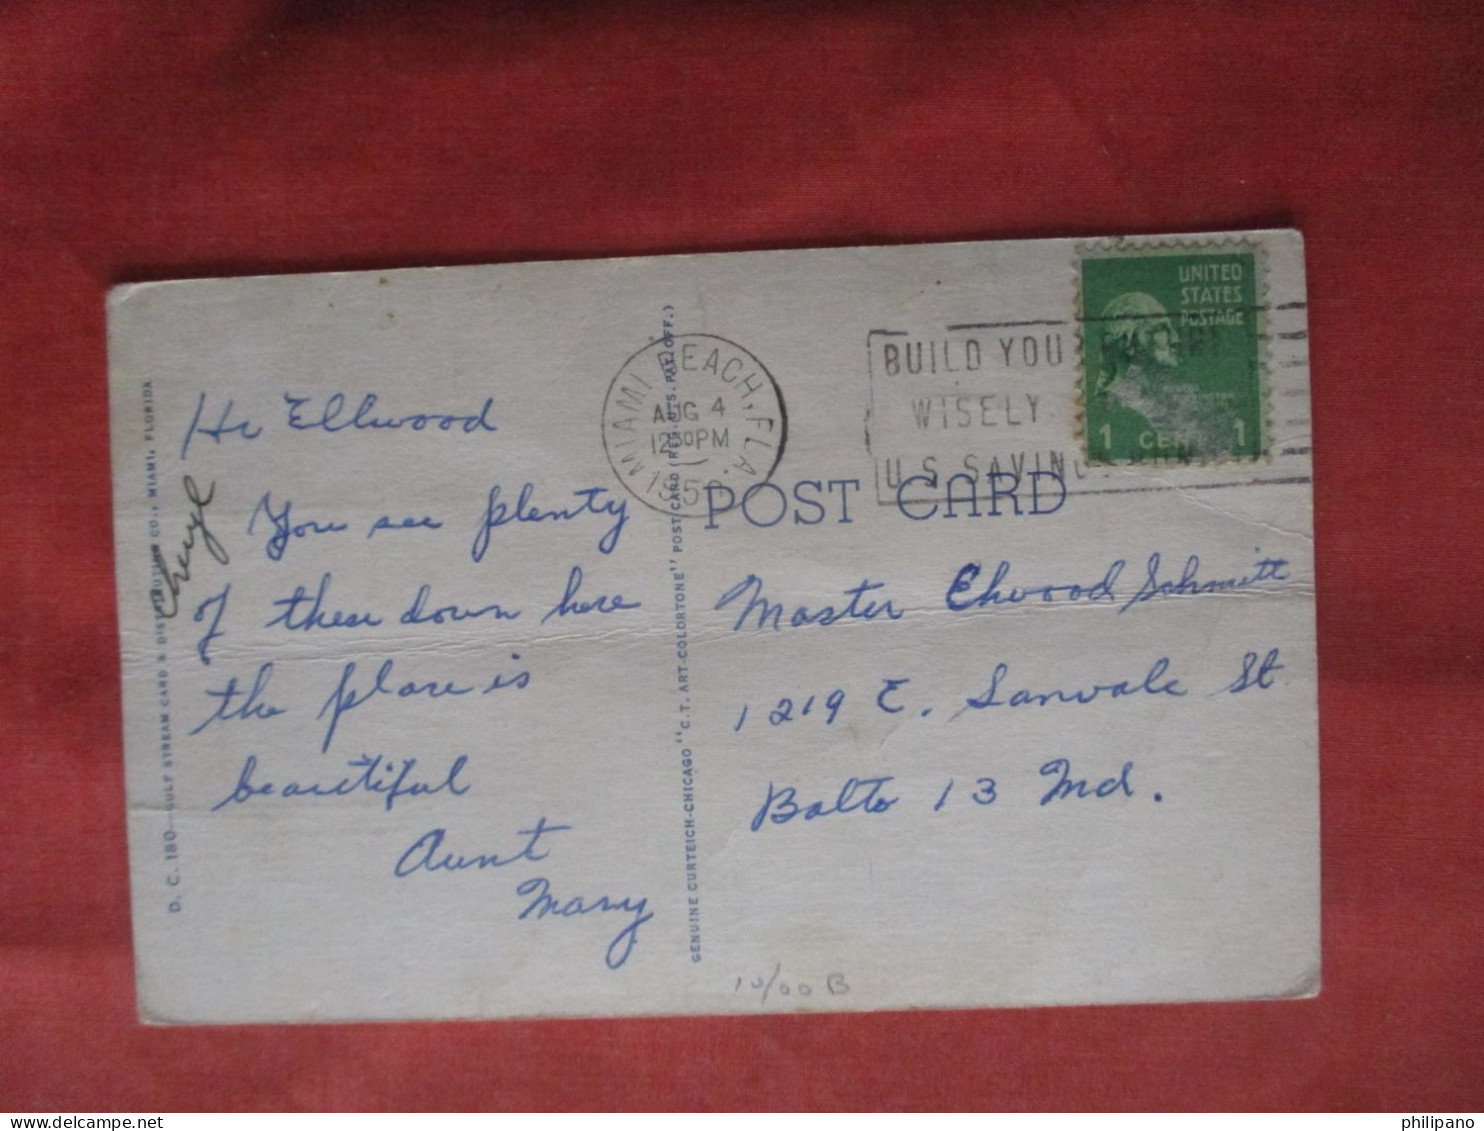 D. C. 180—GULF STREAM CARD & DISTRIBUTING CO., MIAMI, FLORIDA
Cheryl
Hi Ellwood
You see plenty
of these down here
the place is
beautiful
Aunt
Mary
GENUINE CURTEICH-CHICAGO "C.T. ART-COLORTONE" POST CARD (REG. U.S. PAT. OFF.)
MIAMI BEACH, FLA.
AUG 4
12 PM
195
BUILD YOUR
WISELY
U.S. SAVINGS
UNITED
STATES
POSTAGE
1 CENT 1
POST CARD
Master Elwood Schmitt
1219 E. Lanvale St
Balto 13 Md.
10/00 B
philipano